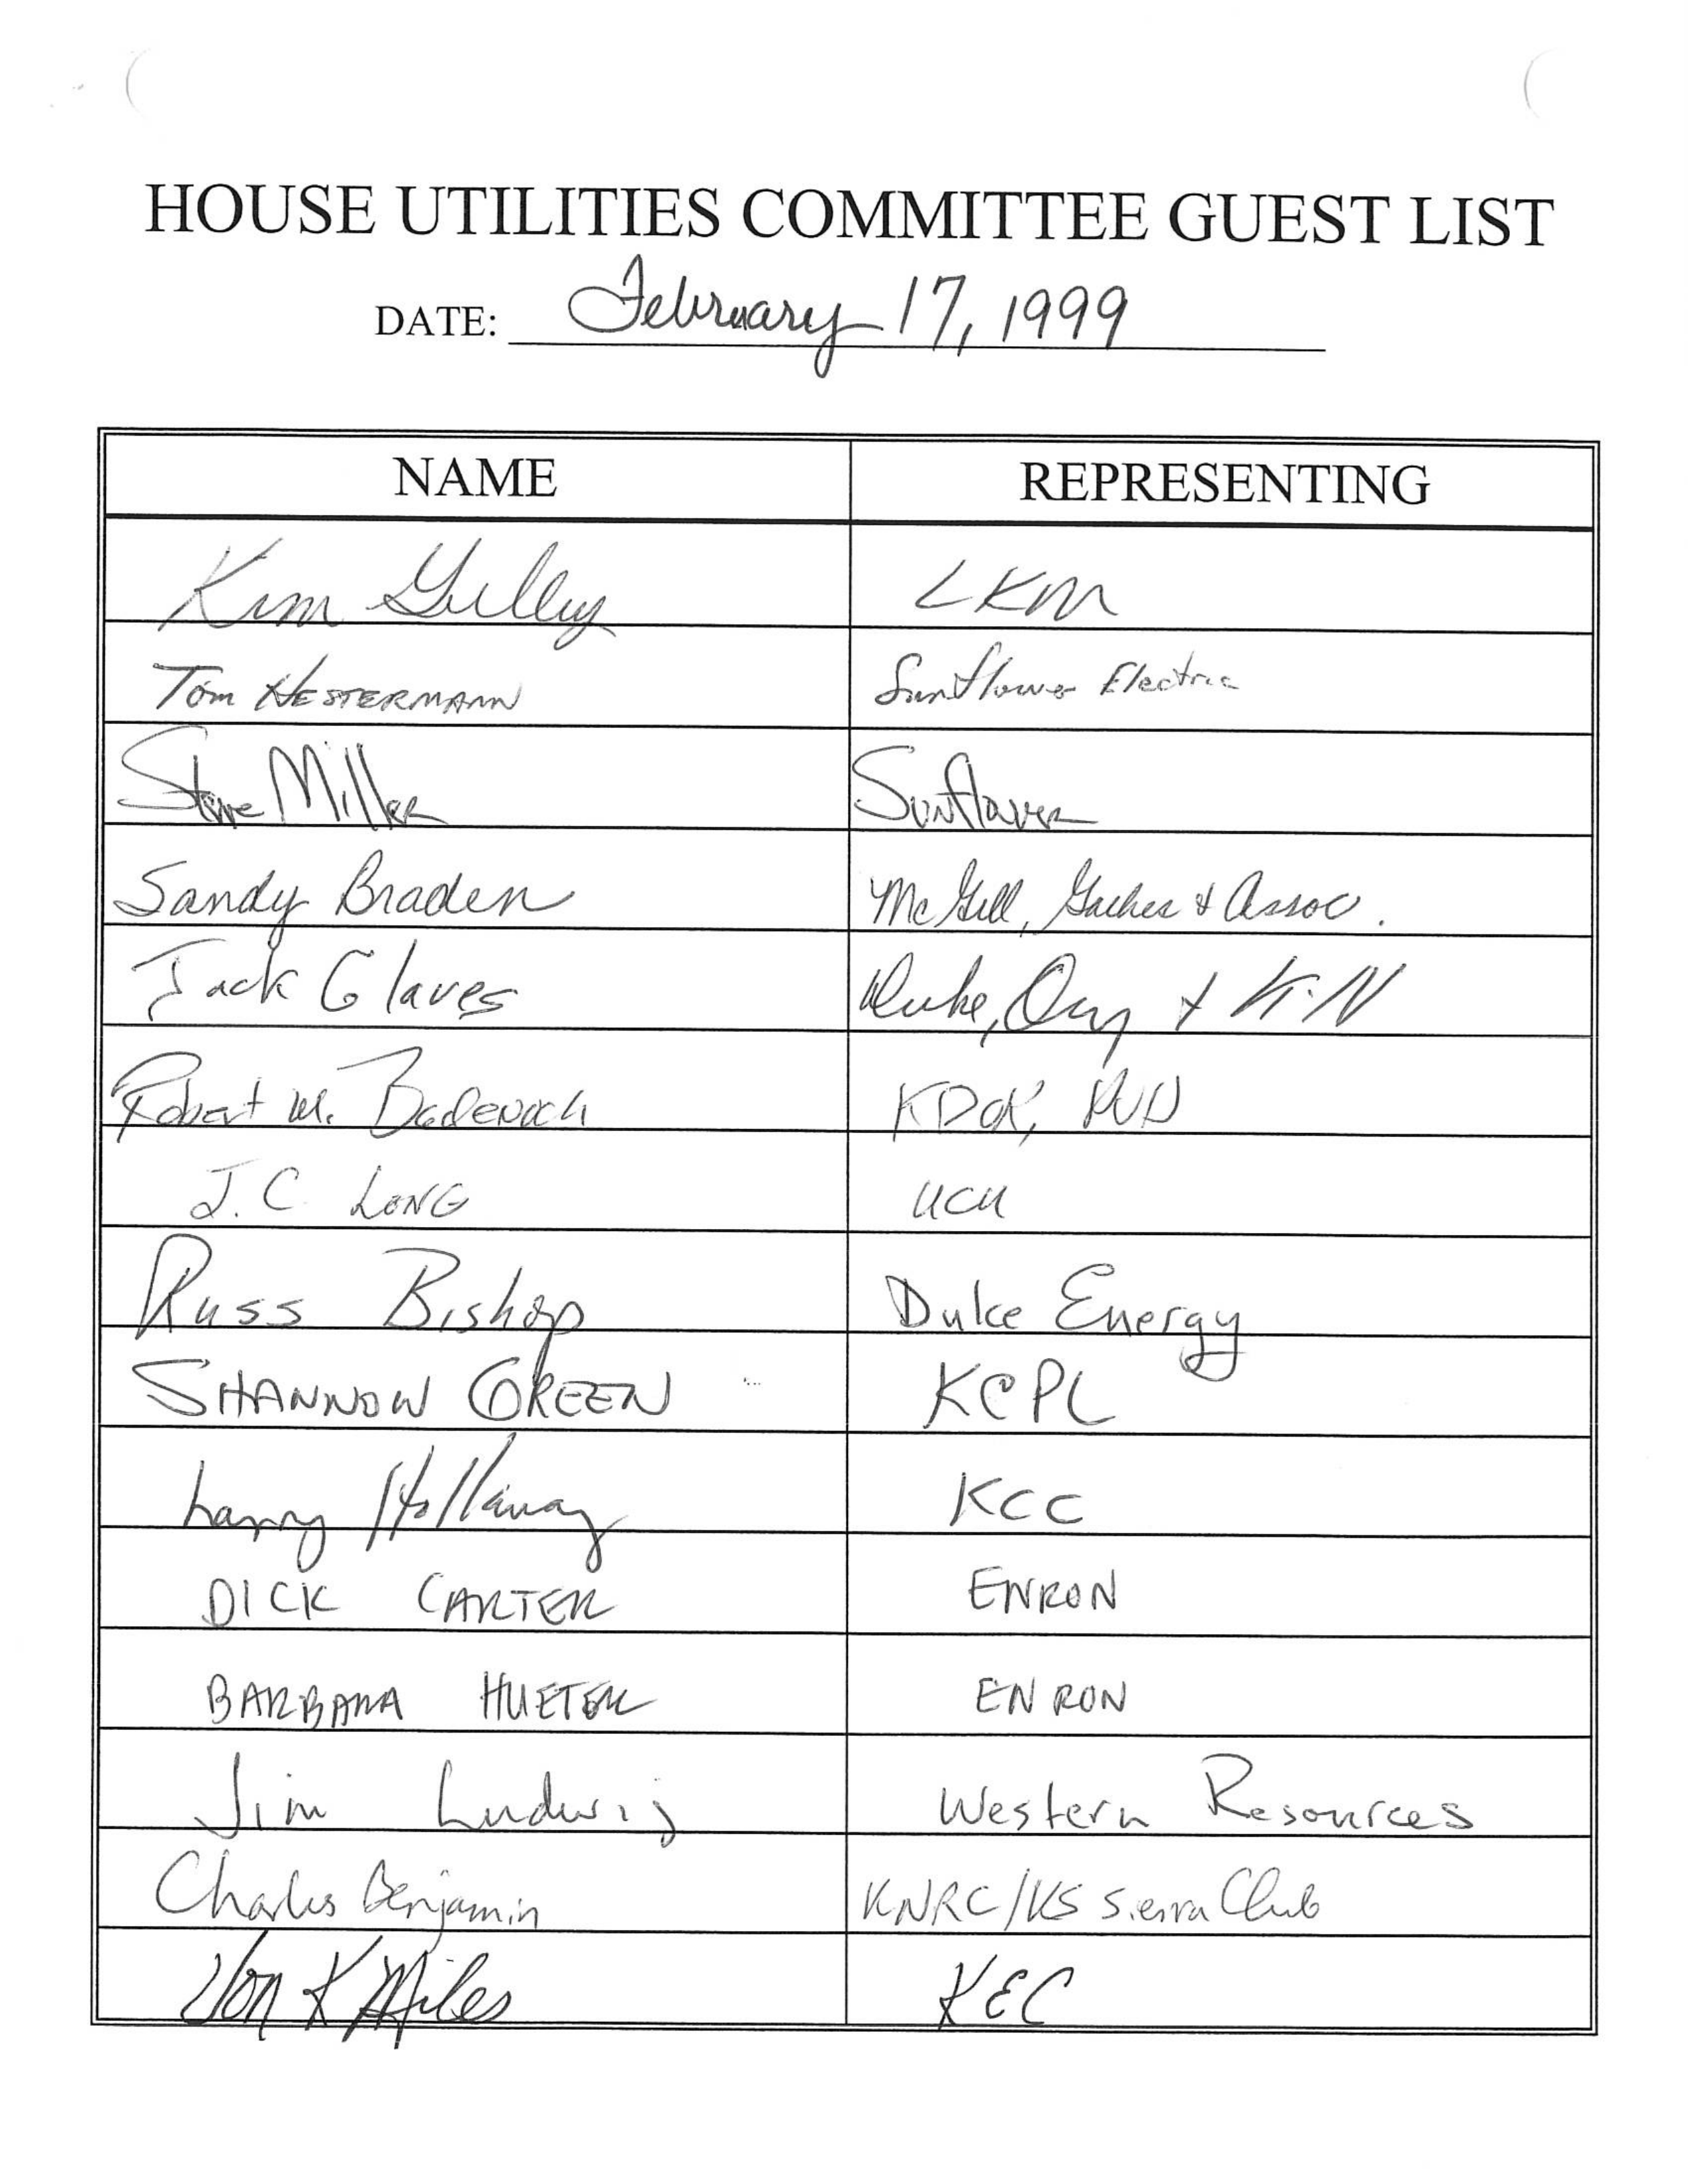 HOUSE UTILITIES COMMITTEE GUEST LIST
DATE: February 17, 1999
NAME REPRESENTING
Kim Gulley LKM
Tom HESTERMANN Sunflower Electric
Steve Miller Sunflower
Sandy Braden McGill, Gaches & Assoc.
Jack Glaves Duke, Oxy & K·N
Robert W. Badenoch
J.C. LONG UCU
Russ Bishop Duke Energy
SHANNON GREEN KCPL
Larry Holloway KCC
DICK CARTER ENRON
BARBARA HUETER ENRON
Jim Ludwig Western Resources
Charles Benjamin KNRC/KS Sierra Club
K Miles KEC